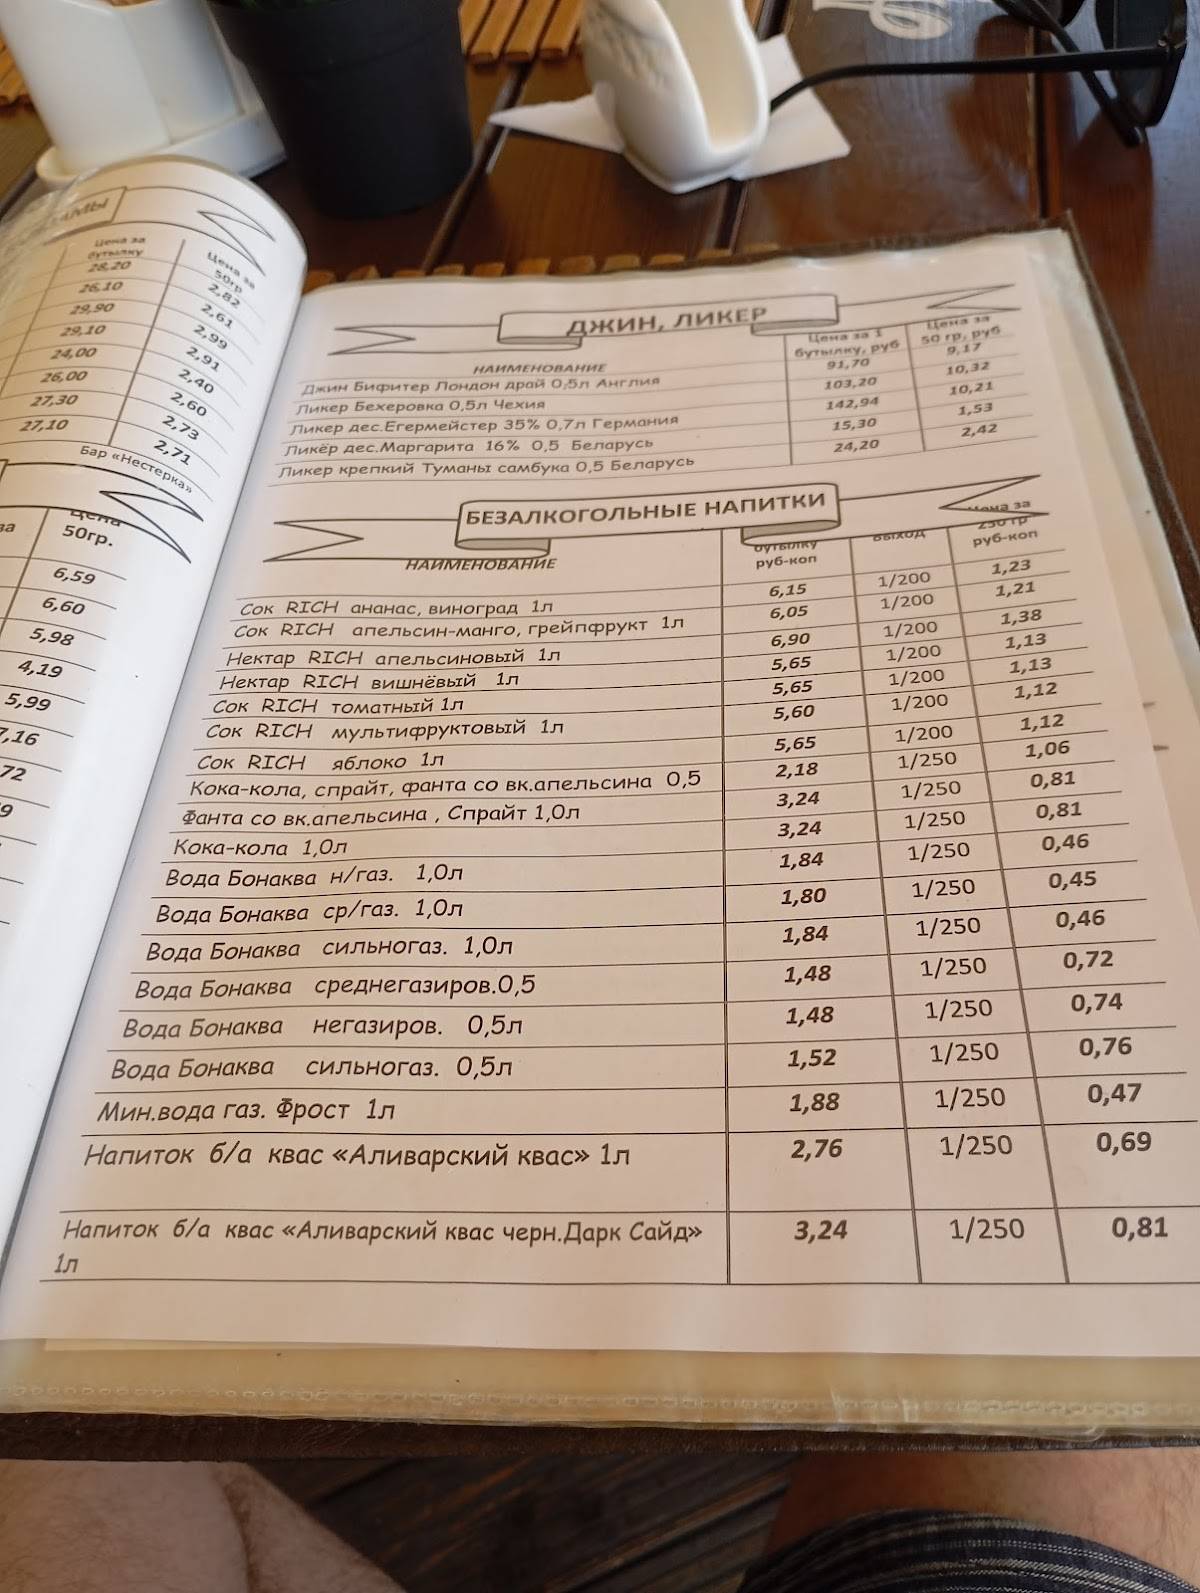 Цена за
бутылку
Цена за
50гр
28,20 2,82
26,10 2,61
29,90 2,99
29,10 2,91
24,00 2,40
26,00 2,60
27,30 2,73
27,10 2,71
Бар «Нестерка»
Цена
50гр.
6,59
6,60
5,98
4,19
5,99
7,16
ДЖИН, ЛИКЕР
НАИМЕНОВАНИЕ Цена за 1 бутылку, руб Цена за 50 гр, руб
Джин Бифитер Лондон драй 0,5л Англия 91,70 9,17
Ликер Бехеровка 0,5л Чехия 103,20 10,32
Ликер дес.Егермейстер 35% 0,7л Германия 142,94 10,21
Ликёр дес.Маргарита 16% 0,5 Беларусь 15,30 1,53
Ликер крепкий Туманы самбука 0,5 Беларусь 24,20 2,42
БЕЗАЛКОГОЛЬНЫЕ НАПИТКИ
НАИМЕНОВАНИЕ бутылку руб-коп ВЫХОД Цена за 250 гр руб-коп
Сок RICH ананас, виноград 1л 6,15 1/200 1,23
Сок RICH апельсин-манго, грейпфрукт 1л 6,05 1/200 1,21
Нектар RICH апельсиновый 1л 6,90 1/200 1,38
Нектар RICH вишнёвый 1л 5,65 1/200 1,13
Сок RICH томатный 1л 5,65 1/200 1,13
Сок RICH мультифруктовый 1л 5,60 1/200 1,12
Сок RICH яблоко 1л 5,65 1/200 1,12
Кока-кола, спрайт, фанта со вк.апельсина 0,5 2,18 1/250 1,06
Фанта со вк.апельсина , Спрайт 1,0л 3,24 1/250 0,81
Кока-кола 1,0л 3,24 1/250 0,81
Вода Бонаква н/газ. 1,0л 1,84 1/250 0,46
Вода Бонаква ср/газ. 1,0л 1,80 1/250 0,45
Вода Бонаква сильногаз. 1,0л 1,84 1/250 0,46
Вода Бонаква среднегазиров.0,5 1,48 1/250 0,72
Вода Бонаква негазиров. 0,5л 1,48 1/250 0,74
Вода Бонаква сильногаз. 0,5л 1,52 1/250 0,76
Мин.вода газ. Фрост 1л 1,88 1/250 0,47
Напиток б/а квас «Аливарский квас» 1л 2,76 1/250 0,69
Напиток б/а квас «Аливарский квас черн.Дарк Сайд» 3,24 1/250 0,81
1л